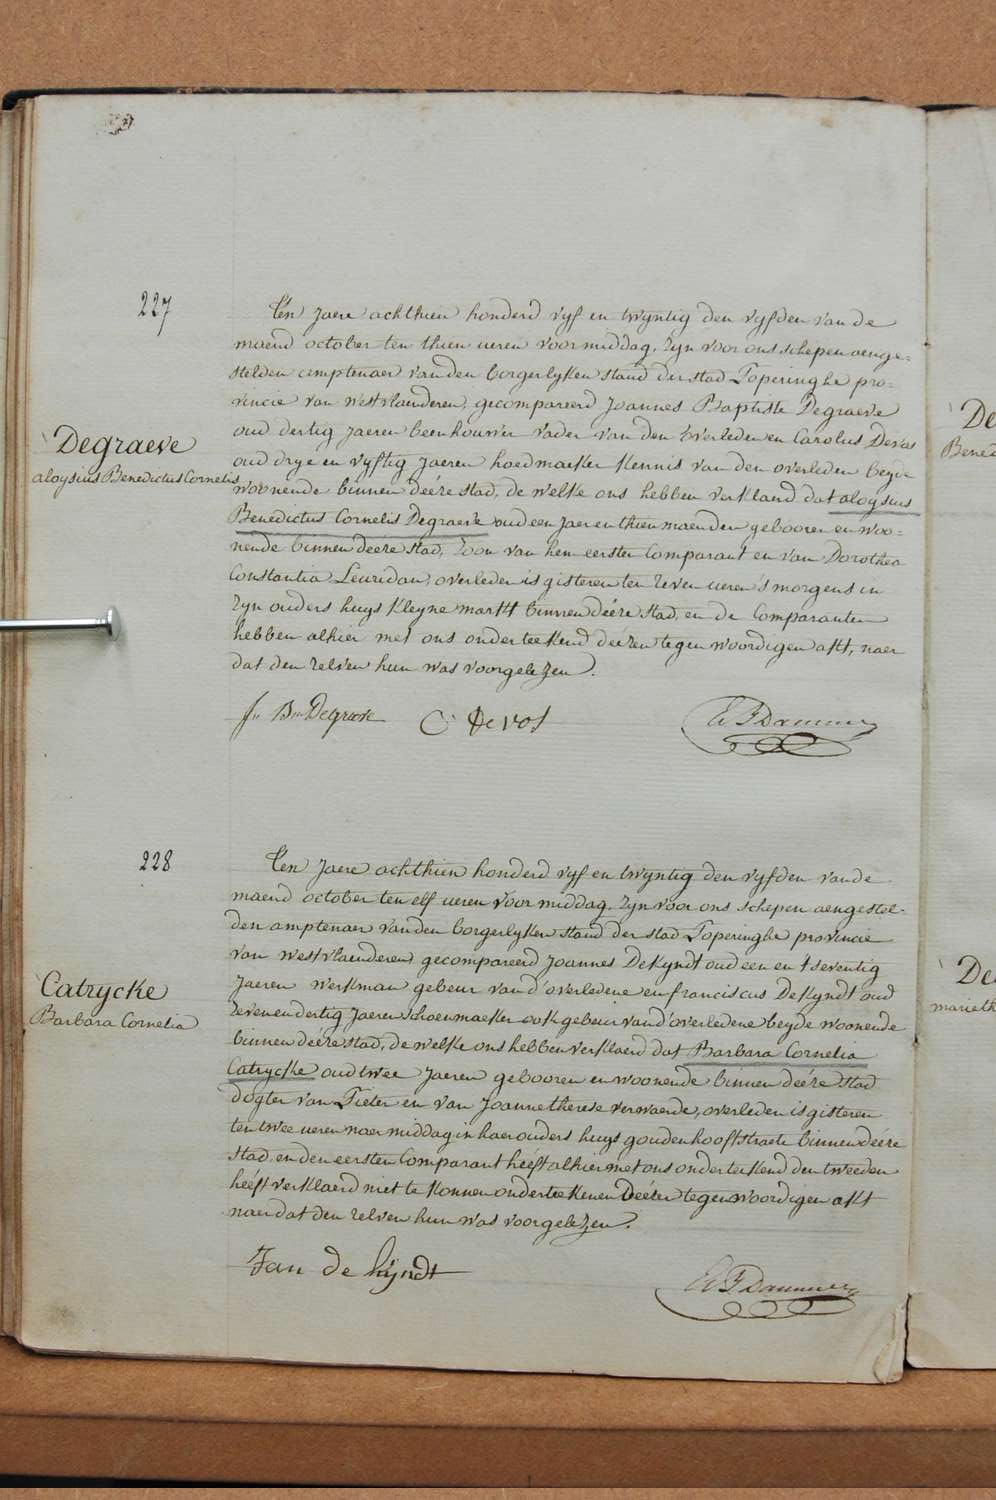 227
Degraeve
aloysius Benedictus Cornelis
Ten Jaere achthien honderd vyf en twyntig den vyfden van de
maend october ten thien ueren voormiddag, Zyn voor ons schepen aenge=
stelden amptenaer van den borgerlyken stand der stad Poperinghe pro=
vincie van westvlaenderen, gecompareerd Joannes Baptiste Degraeve
oud dertig Jaeren beenhouwer vader van den overledenen Carolus Devos
oud drye en vyftig Jaeren hoedmaeker Kennis van den overleden beyde
woonende binnen deéze stad, de welke ons hebben verklaard dat aloysius
Benedictus Cornelis Degraeve oud een Jaer en thien maenden gebooren en woo=
nende binnen deéze stad, Zoon van hem eersten Comparant en van Dorothea
Constantia Leuridan, overleden is gisteren ten zeven ueren 's morgens in
Zyn ouders huys Kleyne markt binnen deéze stad, en de Comparanten
hebben alhier met ons onderteekend deezen tegenwoordigen akt, naer
dat den zelven hun was voorgelezen.
Jn Bte Degraeve C Devos
228
Catrycke
Barbara Cornelia
Ten Jaere achthien honderd vyf en twyntig den vyfden van de
maend october ten elf ueren voormiddag, Zyn voor ons schepen aengestel=
den amptenaer van den borgerlyken stand der stad Poperinghe provincie
van westvlaenderen gecompareerd Joannes DeKyndt oud een en t'seventig
Jaeren werkman gebeur van d'overledene en franciscus DeKyndt oud
zevenendertig Jaeren schoenmaeker ook gebeur van d'overledene beyde woonende
binnen deéze stad, de welke ons hebben verklaerd dat Barbara Cornelia
Catrycke oud twee Jaeren gebooren en woonende binnen deéze stad
dogter van Pieter en van Joanne therese verwaerde, overleden is gisteren
ten twee ueren naermiddag in haer ouders huys goudenhooft straete binnen deéze
stad, en den eersten Comparant heéft alhier met ons onderteekend den tweeden
heéft verklaerd niet te konnen onderteekenen Deézen tegenwoordigen akt
naer dat den zelven hun was voorgelezen.
Jan de Kyndt
De
Bened
De
marieth